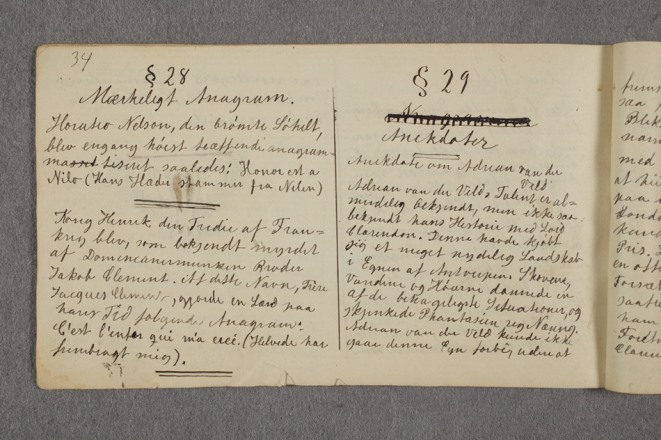 34
§ 28
Mærkeligt Anagram.
Horatio Nelson, den brömte Söhelt,
blev engang höist træffende anagram-
matisirt saaledes: Honor est a
Nilo (Hans Hæder stammer fra Nilen)
Kong Henrik den Tredie af Fran-
krig blev, som bekjendt myrdet
af Dominicanermunken Broder
Jakob Clement. Af dette Navn, Frère
Jacques Clement, gjorde en Lærd paa
hans Tid følgende Anagram:
C'est l'enfer qui m'a créé. (Helvede har
frembragt mig).
§ 29
Anekdoter
Anekdote om Adrian van der
Veld
Adrian van der Velds Talent er al-
mindelig bekjendt, men ikke saa
bekjendt hans Historie med Lord
Clarendon. Denne havde kjøbt
sig et meget nydelig Landskab
i Egnen af Antwerpen. Skovene,
Vandene og Høiene dannede en
af de behageligste Situationer, og
skjænkede Phantasien reg Næring.
Adrian van der Veld kunde ikke
gaae denne Egn forbi, uden at
frems
saa
Blik
nam
med
at hu
paa
Lond
kund
Pris.
en oft
Forsæt
saate
ham
Fordr
Claren